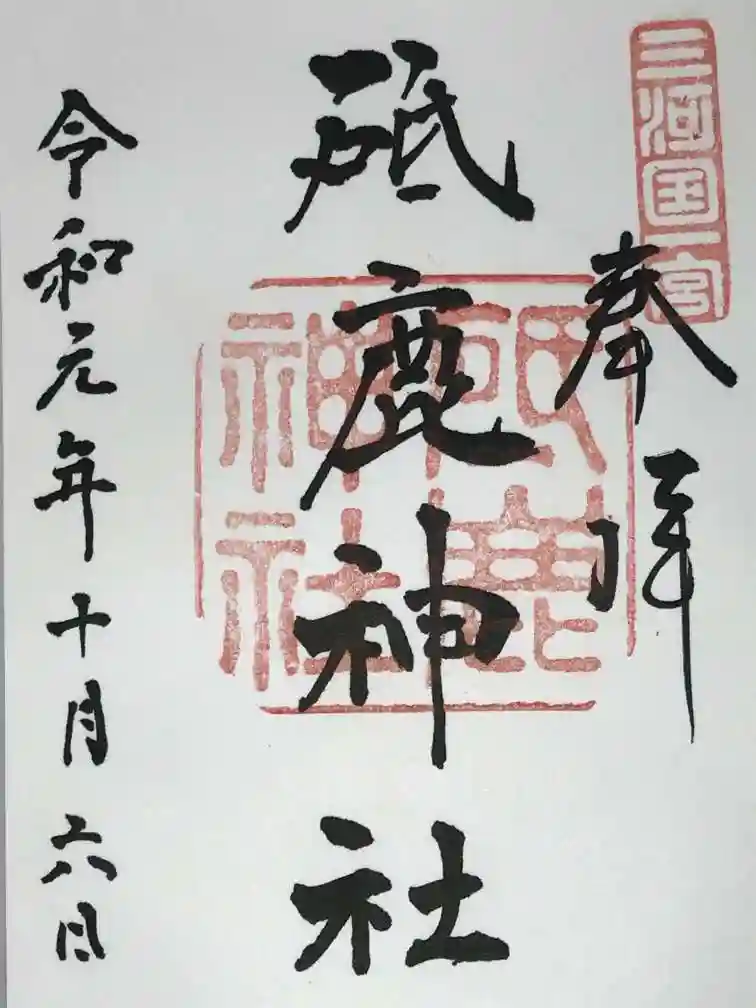 三河国一宮
奉拝
砥鹿神社
砥鹿
神社
令和元年十月六日